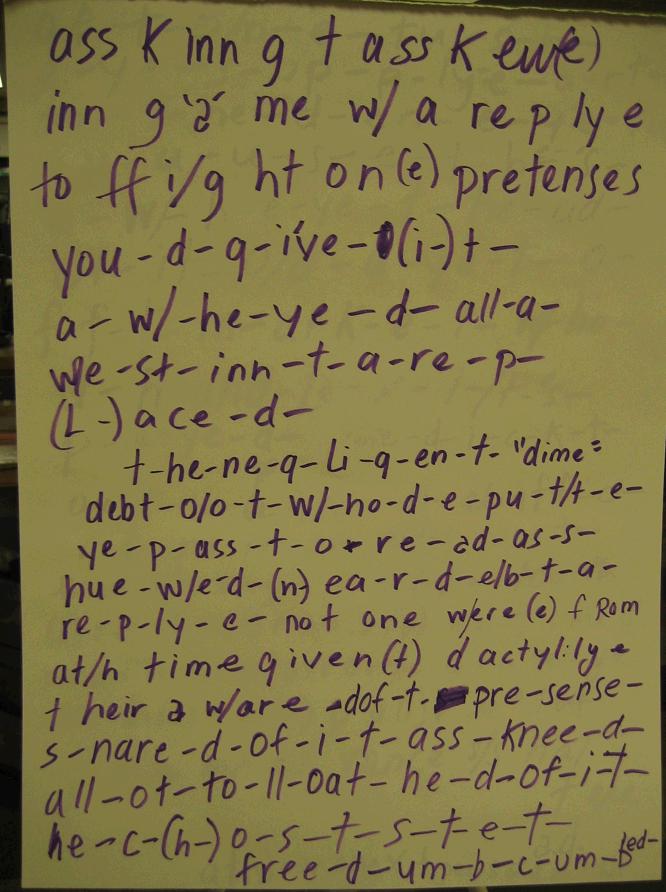 ass K inn g t ass K ew(e)
inn g 'a' me w/ a re p ly e
to ff i/g ht on(e) pretenses
you-d-g-ive-(i-)t-
a-w/-he-ye-d-all-a-
we-st-inn-t-a-re-p-
(L-)ace-d-
t-he-ne-g-Li-g-en-t-"dime=
debt-o/o-t-w/-ho-d-e-pu-t/t-e-
ye-p-ass-t-o-re-ad-as-s-
hue-w/e-d-(n)ea-r-d-e/b-t-a-
re-p-ly-e-not one w/ere(e) f Rom
at/h time given(t) dactylily e
t heir a w/are-dof-t-pre-sense-
s-nare-d-of-i-t-ass-knee-d-
all-ot-to-ll-oat-he-d-of-i-t-
he-c-(h-)o-s-t-s-t-e-t-
free-d-um-b-c-um-bed-